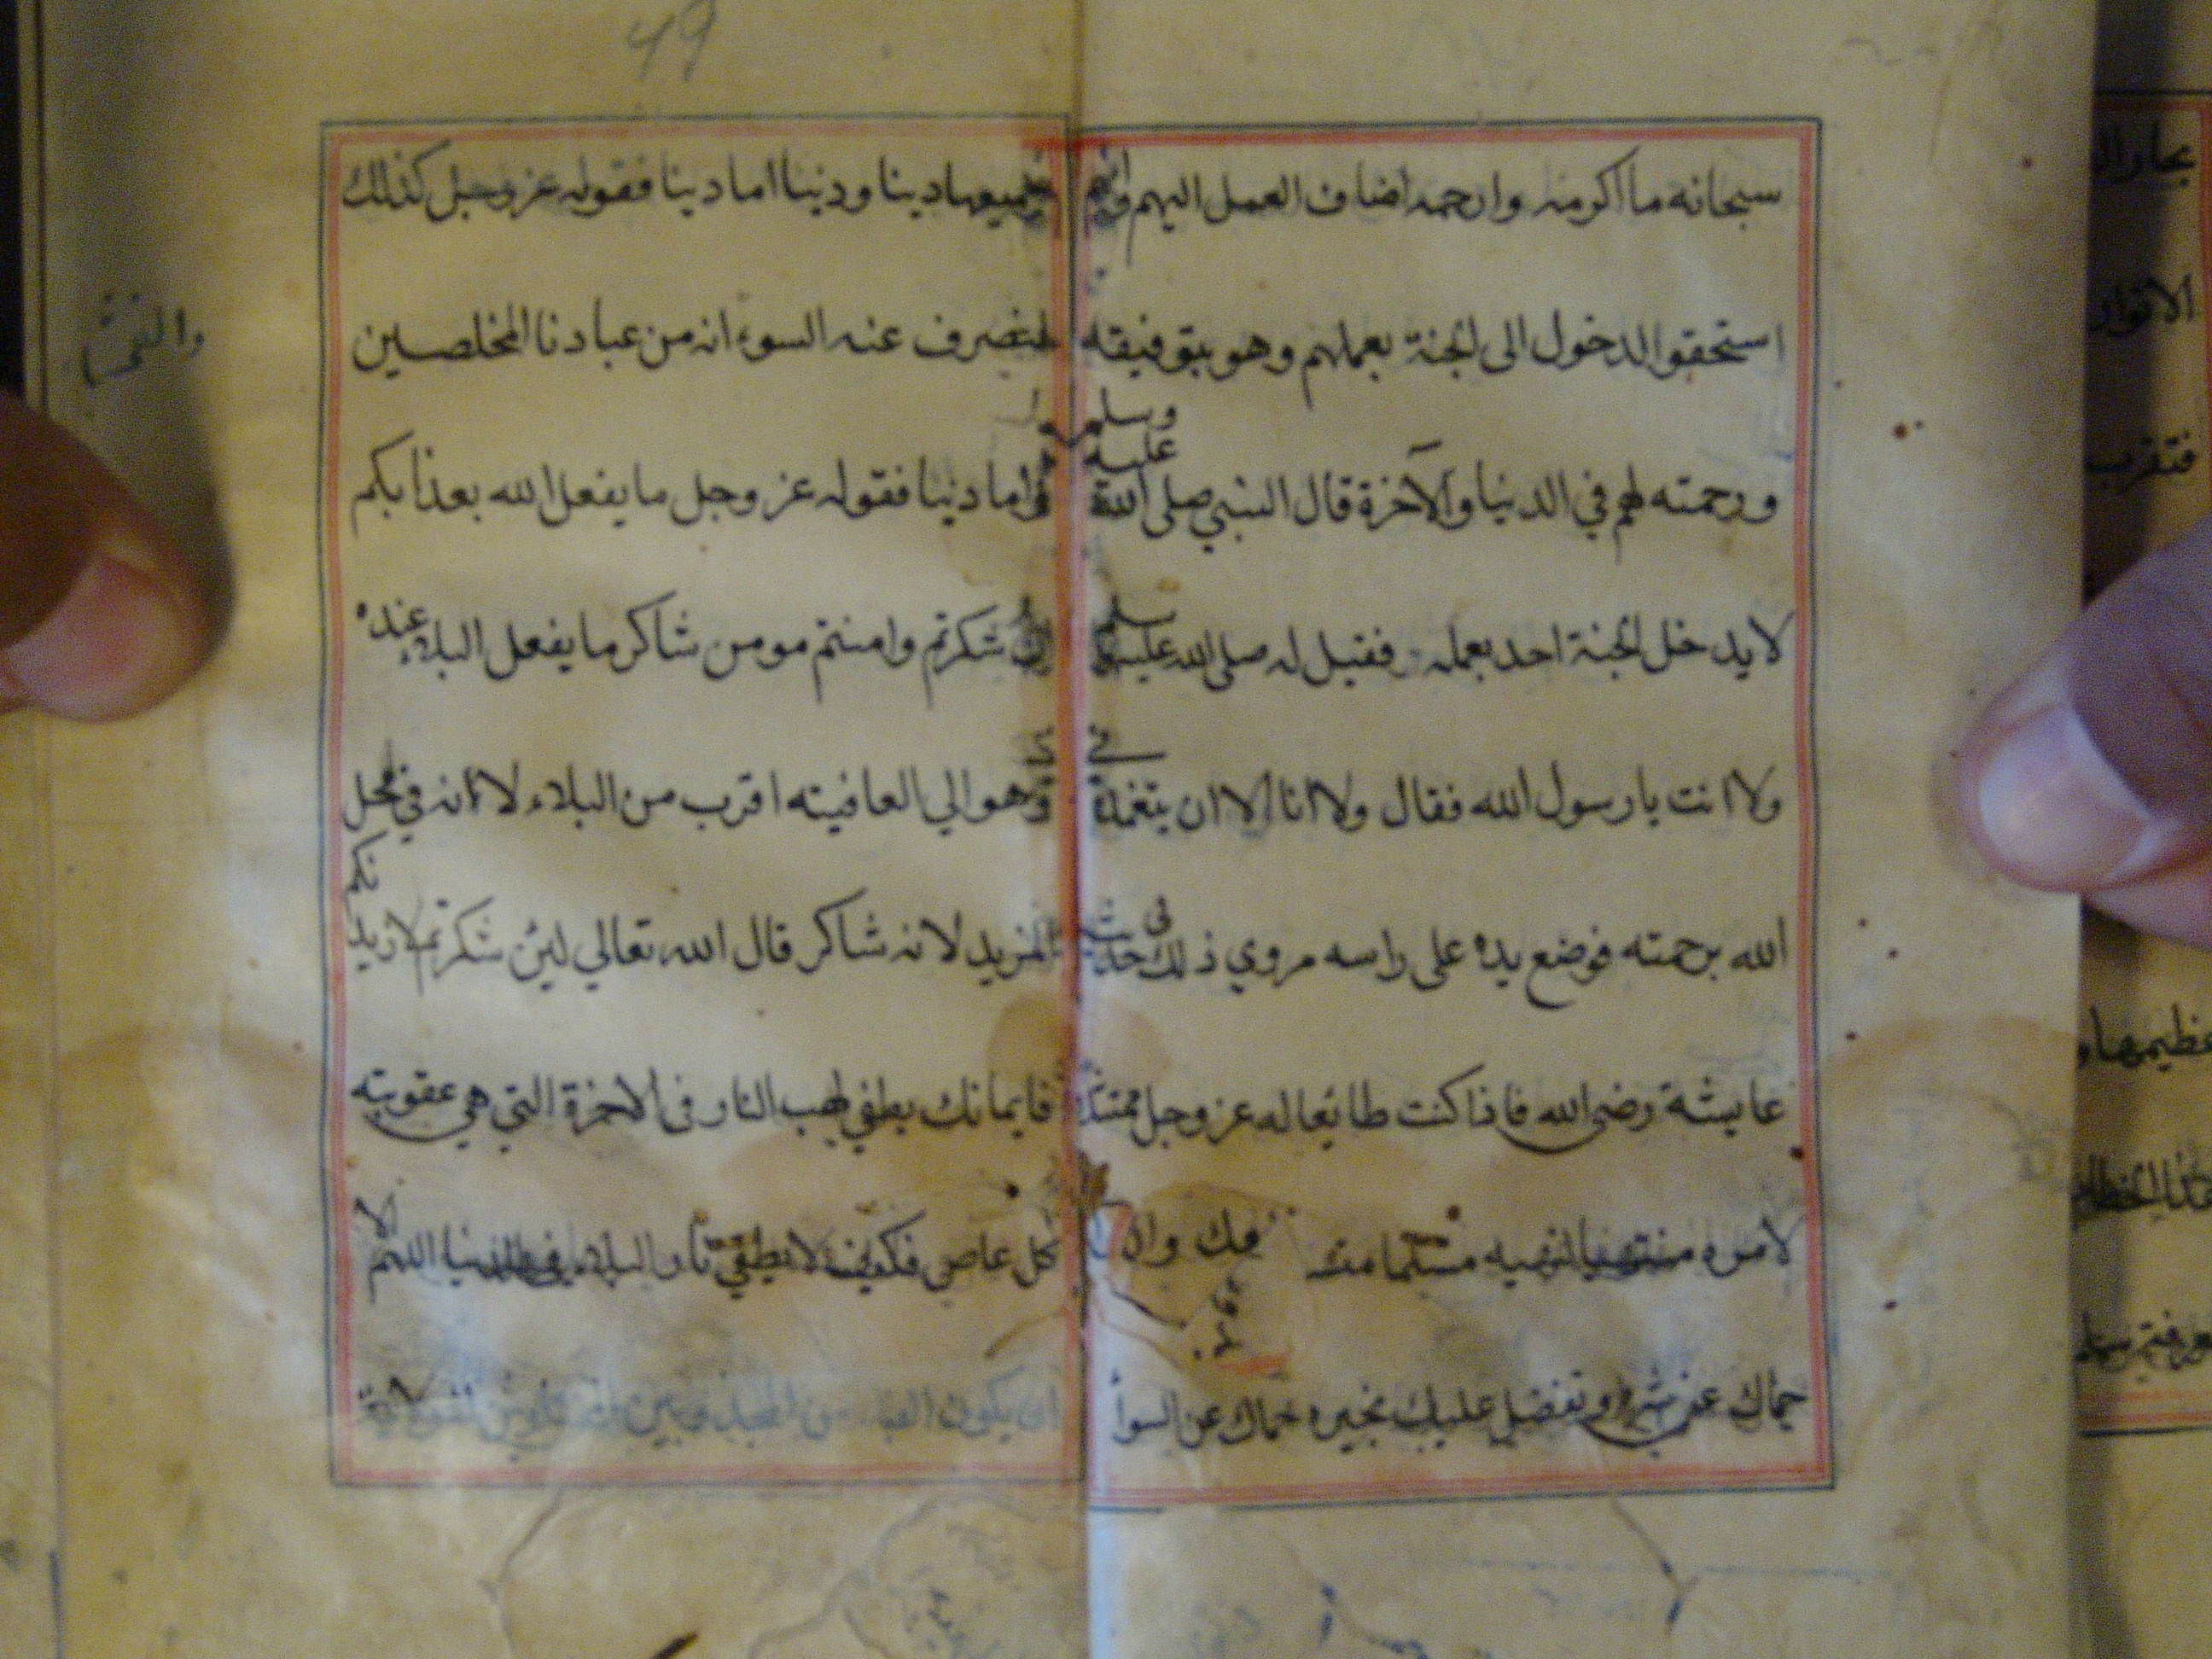 سبحانه ما اكرمه وارحمه اضاف العمل اليهم وانهم
استحقوا الدخول الى الجنة بعملهم وهو بتوفيقه
ورحمته لهم في الدنيا والآخرة قال النبي صلى الله عليه وسلم
لا يدخل الجنة احد بعمله فقيل له صلى الله عليه وسلم
ولا انت يا رسول الله فقال ولا انا الا ان يتغمدني
الله برحمته فوضع يده على راسه مروي ذلك في حديث
عايشة رضي الله فاذا كنت طائعا له عز وجل ممتثلا
لامره منتهيا لنهيه مسلما منه وان
حماك عن شره وتفضل عليك بخيره حماك عن السوأ
49
جميعها دينا ودنيا اما دينا فقوله عز وجل كذلك
لنصرف عنه السوء انه من عبادنا المخلصين
واما دنيا فقوله عز وجل ما يفعل الله بعذابكم
ان شكرتم وامنتم مومن شاكر ما يفعل البلاء عنده
وهو الي العافيته اقرب من البلاء لانه في محل
المزيد لانه شاكر قال الله تعالي لين شكرتم لازيدنكم
فايمانك يطفي لهب النار في الاخرة التي هي عقوبته
كل عاص فكيف لا يطفي نار البلاء في الدنيا اللهم الا
ان يكون العبد من المجذوبين